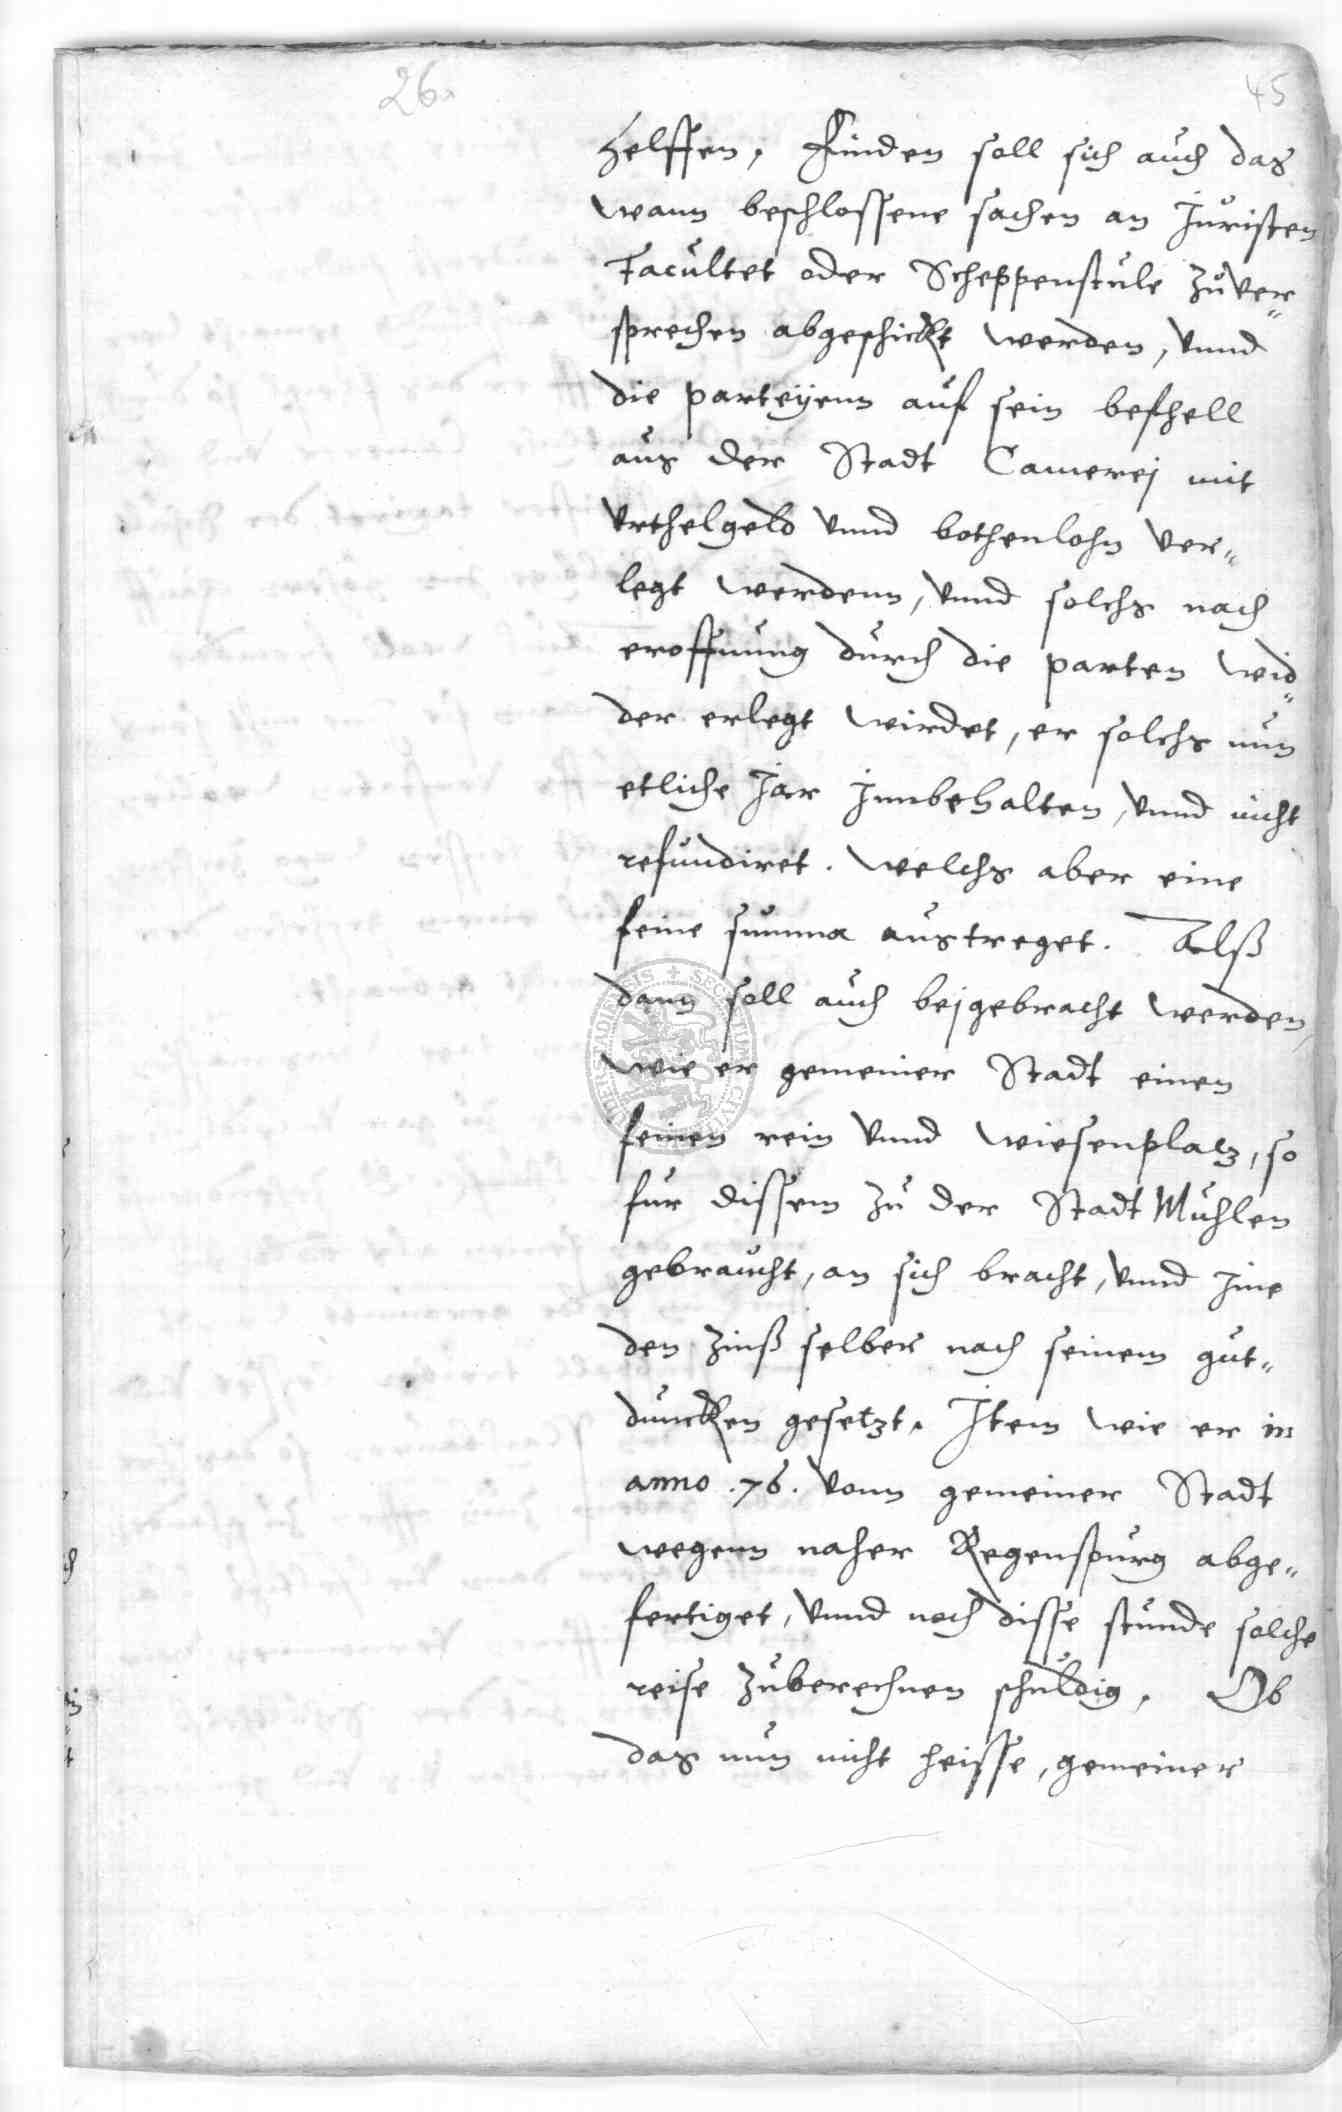 26.
45
helffen, Finden soll sich auch das
wann beschlossene sachen an Juristen
Facultet oder Scheppenstule zuver„
sprechen abgeschickt werden, vnnd
die parteÿenn auf sein befhell
aus der Stadt Camerej mit
vrthelgeld vnnd bothenlohn ver„
legt werdenn, vnnd solchs nach
eroffnung durch die parten wid„
der erlegt wirdet, er solchs nun
etliche Jar Jnnbehalten, vnnd nicht
refundiret. welchs aber eine
feine summa austreget. Alß
dann soll auch bejgebracht werden,
wie er gemeiner Stadt einen
feinen rein vnnd wiesenplatz, so
fur dissem zu der Stadt Muhlen
gebraucht, an sich bracht, vnnd Jme
den zinß selber nach seinem gut„
duncken gesetzt, Jtem wie er in
anno .76. vonn gemeiner Stadt
wegenn naher Regenspurg abge„
fertiget, vnnd noch disse stunde solche
reise zuberechnen schuldig, Ob
das nun nicht heisse, gemeiner